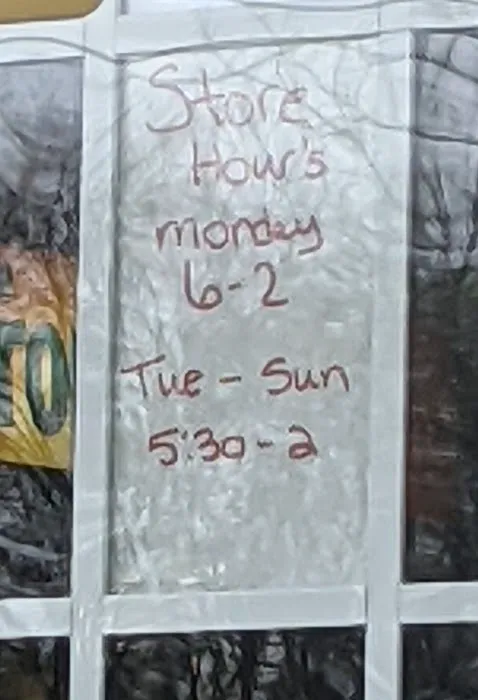 Store
Hour's
monday
6-2
Tue - Sun
5:30-2